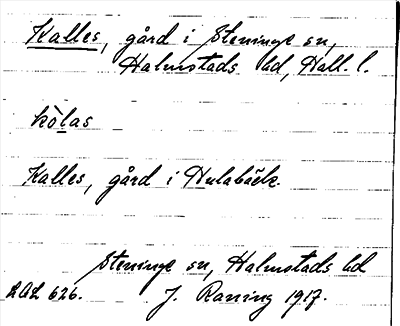 Kalles, gård i Steninge sn,
Halmstads hd, Hall. l.
kòlas
Kalles, gård i Hulabäck.
Steninge sn, Halmstads hd
LAL 626. J. Raning 1917.